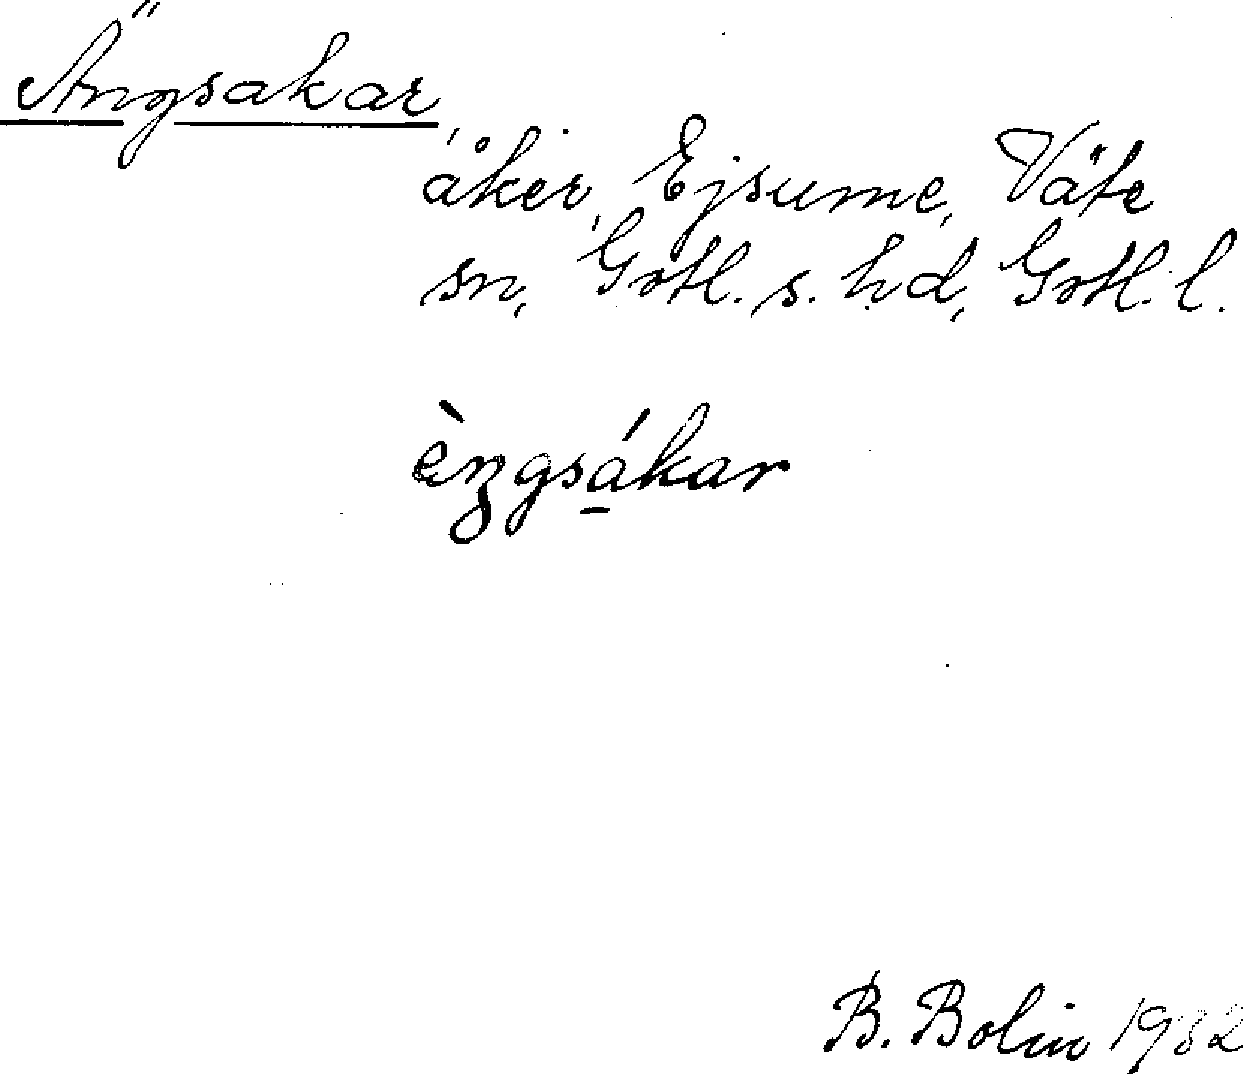 Ängsakar
åker, Ejsume, Väte
sn, Gotl. s. hd, Gotl. l.
èŋgsákar
B. Bolin 1932